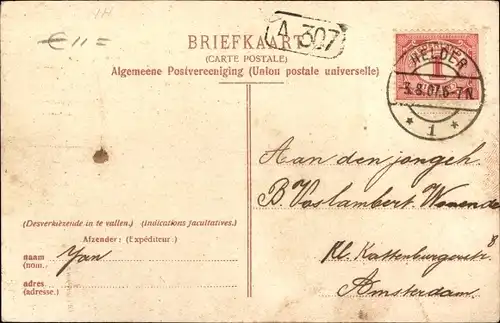 1H
€ 11=
A 307
BRIEFKAART
(CARTE POSTALE)
Algemeene Postvereeniging (Union postale universelle)
HELDER
3.8.07.6-7N
* 1 *
1
Aan den jongeh.
B. Voslambert. Wonende
Kl. Kattenburgerstr. 8
Amsterdam.
(Desverkiezende in te vullen.) (indications facultatives.)
Afzender: (Expéditeur:)
naam
(nom.) Jan
adres
(adresse.)